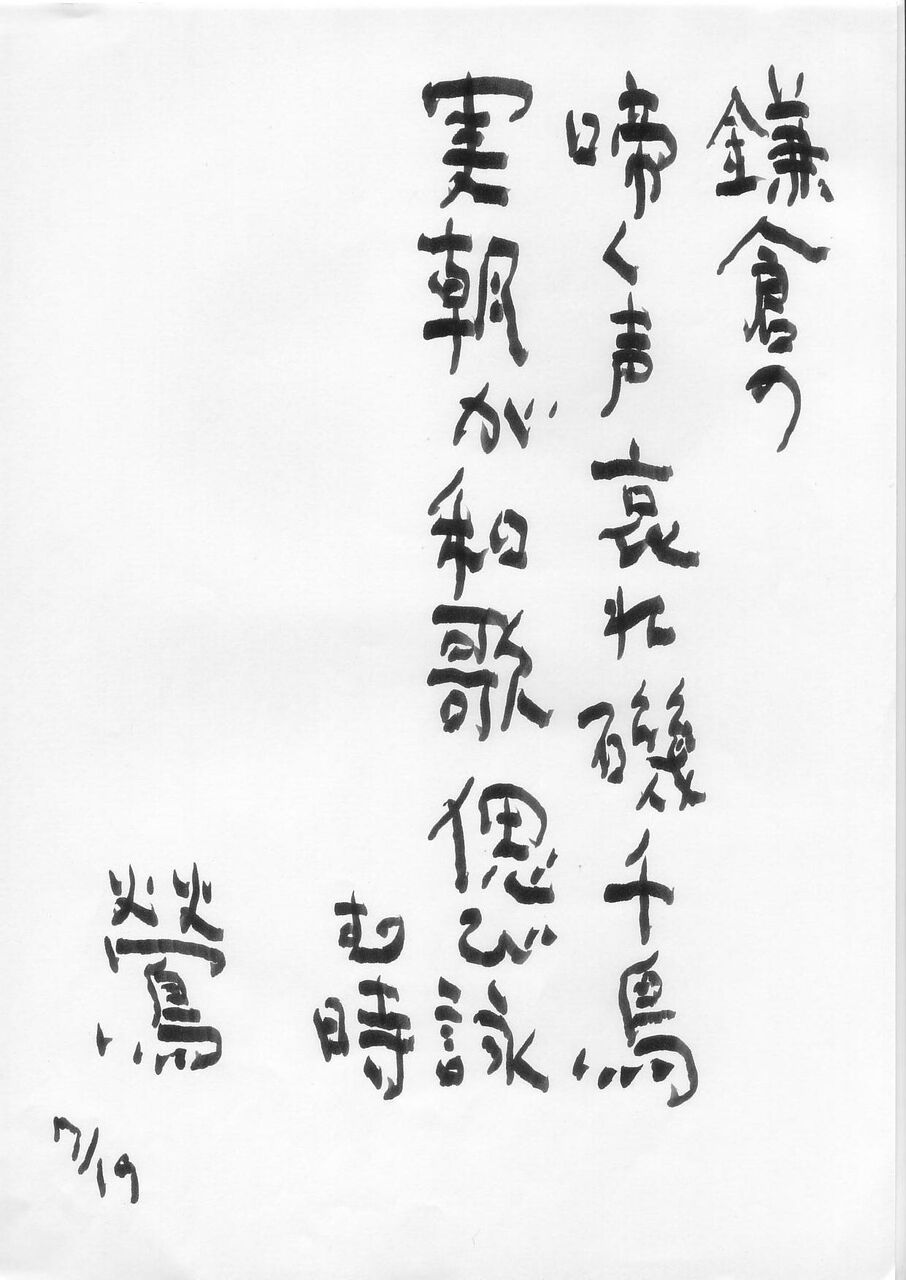 鎌倉の
啼く声哀れ磯千鳥
実朝が和歌偲び詠
む時
鶯
7/19